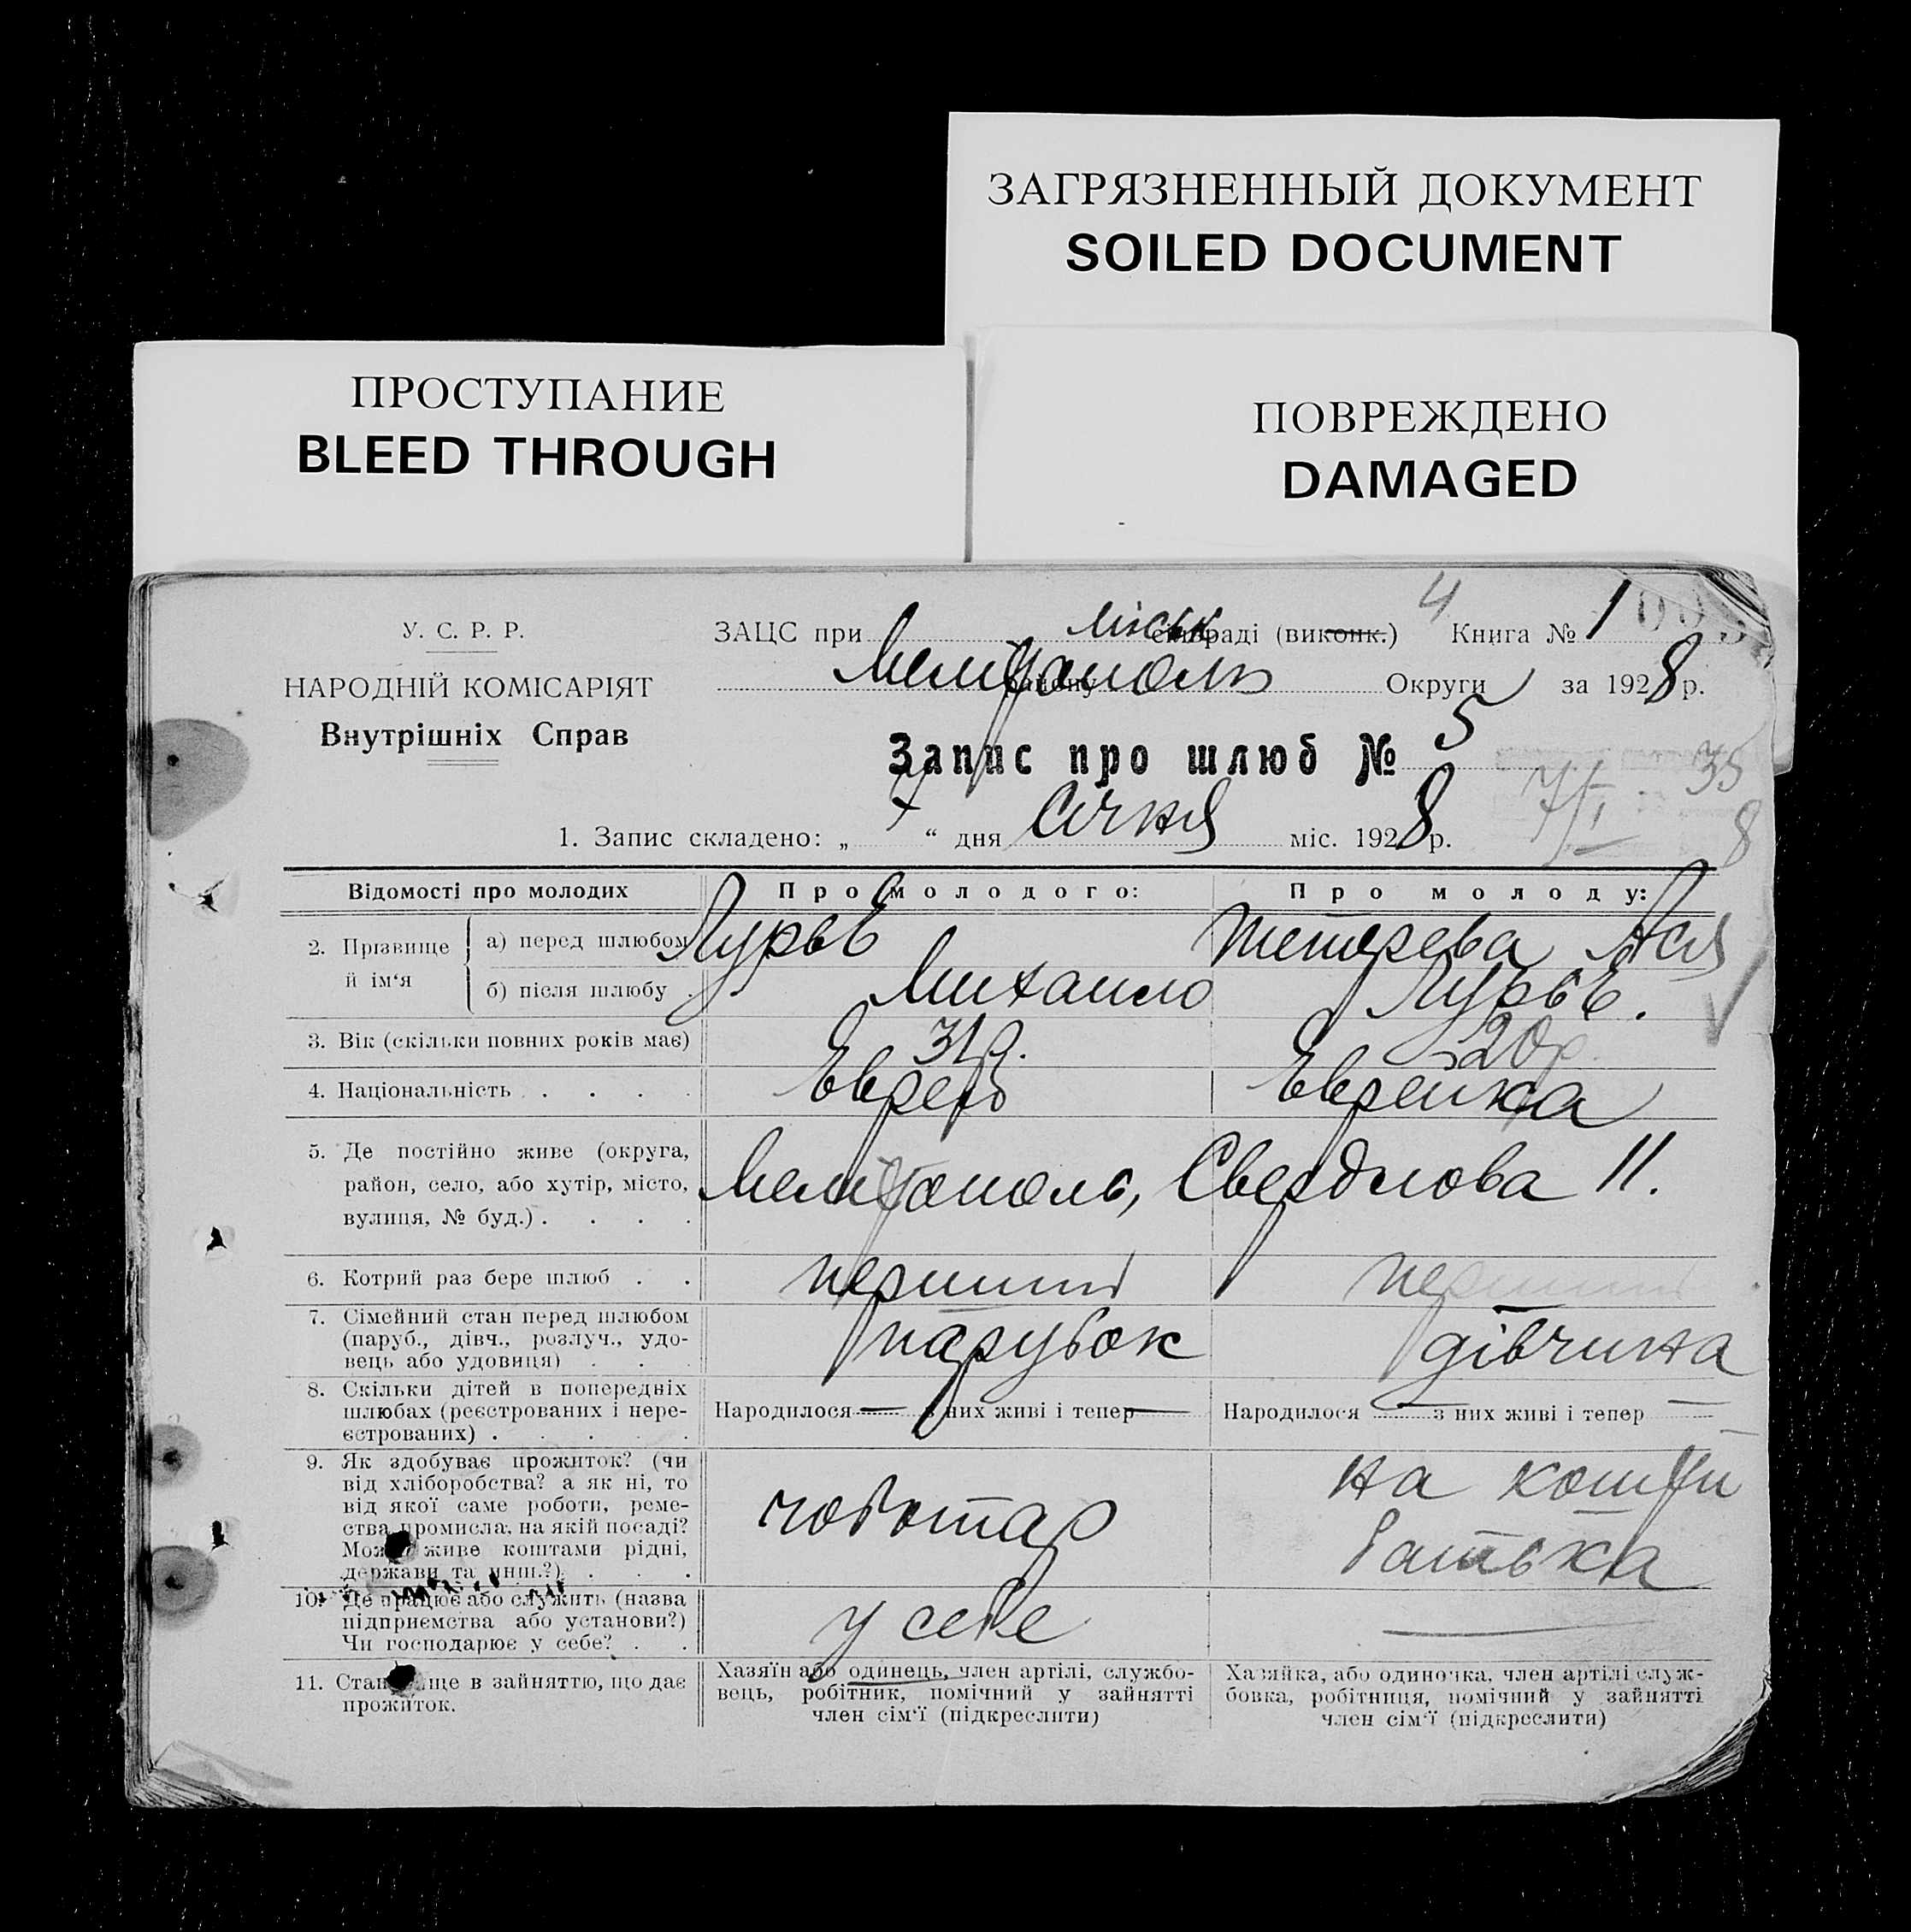 ЗАГРЯЗНЕННЫЙ ДОКУМЕНТ
SOILED DOCUMENT
ПРОСТУПАНИЕ
BLEED THROUGH
ПОВРЕЖДЕНО
DAMAGED
4
У. С. Р. Р.
НАРОДНІЙ КОМІСАРІЯТ
Внутрішніх Справ
ЗАЦС при міськ раді (виконк.) Книга № 1
Мелітополь Округи за 1928 р.
Запис про шлюб № 5
35
7/I 8
1. Запис складено: „ 7 “ дня Січня міс. 1928 р.
Відомості про молодих Про молодого: Про молоду:
2. Прізвище й ім‘я а) перед шлюбом Лурьє Тетерева Ася
б) після шлюбу Михаило Лурьє.
3. Вік (скільки повних років має) 31 р. 20 р.
4. Національність . . . . Еврей Еврейка
5. Де постійно живе (округа,
район, село, або хутір, місто,
вулиця, № буд.) . . . .
Мелітополь, Свердлова 11.
6. Котрий раз бере шлюб . . перший перший
7. Сімейний стан перед шлюбом
(паруб., дівч., розлуч., удо-
вець або удовиця) . . .
парубок дівчина
8. Скільки дітей в попередніх
шлюбах (реєстрованих і нере-
єстрованих) . . . . .
Народилося — з них живі і тепер — Народилося — з них живі і тепер —
9. Як здобуває прожиток? (чи
від хліборобства? а як ні, то
від якої саме роботи, реме-
ства промисла, на якій посаді?
Може живе коштами рідні,
держави та инш.?) . . .
чоботар на кошти
батька
10. Де працює або служить (назва
підприємства або установи?)
Чи господарює у себе? . .
у себе —
11. Становище в зайняттю, що дає
прожиток.
Хазяїн або одинець, член артілі, службо-
вець, робітник, помічний у зайнятті
член сім‘ї (підкреслити)
Хазяйка, або одиночка, член артілі служ-
бовка, робітниця, помічний у зайнятті
член сім‘ї (підкреслити)